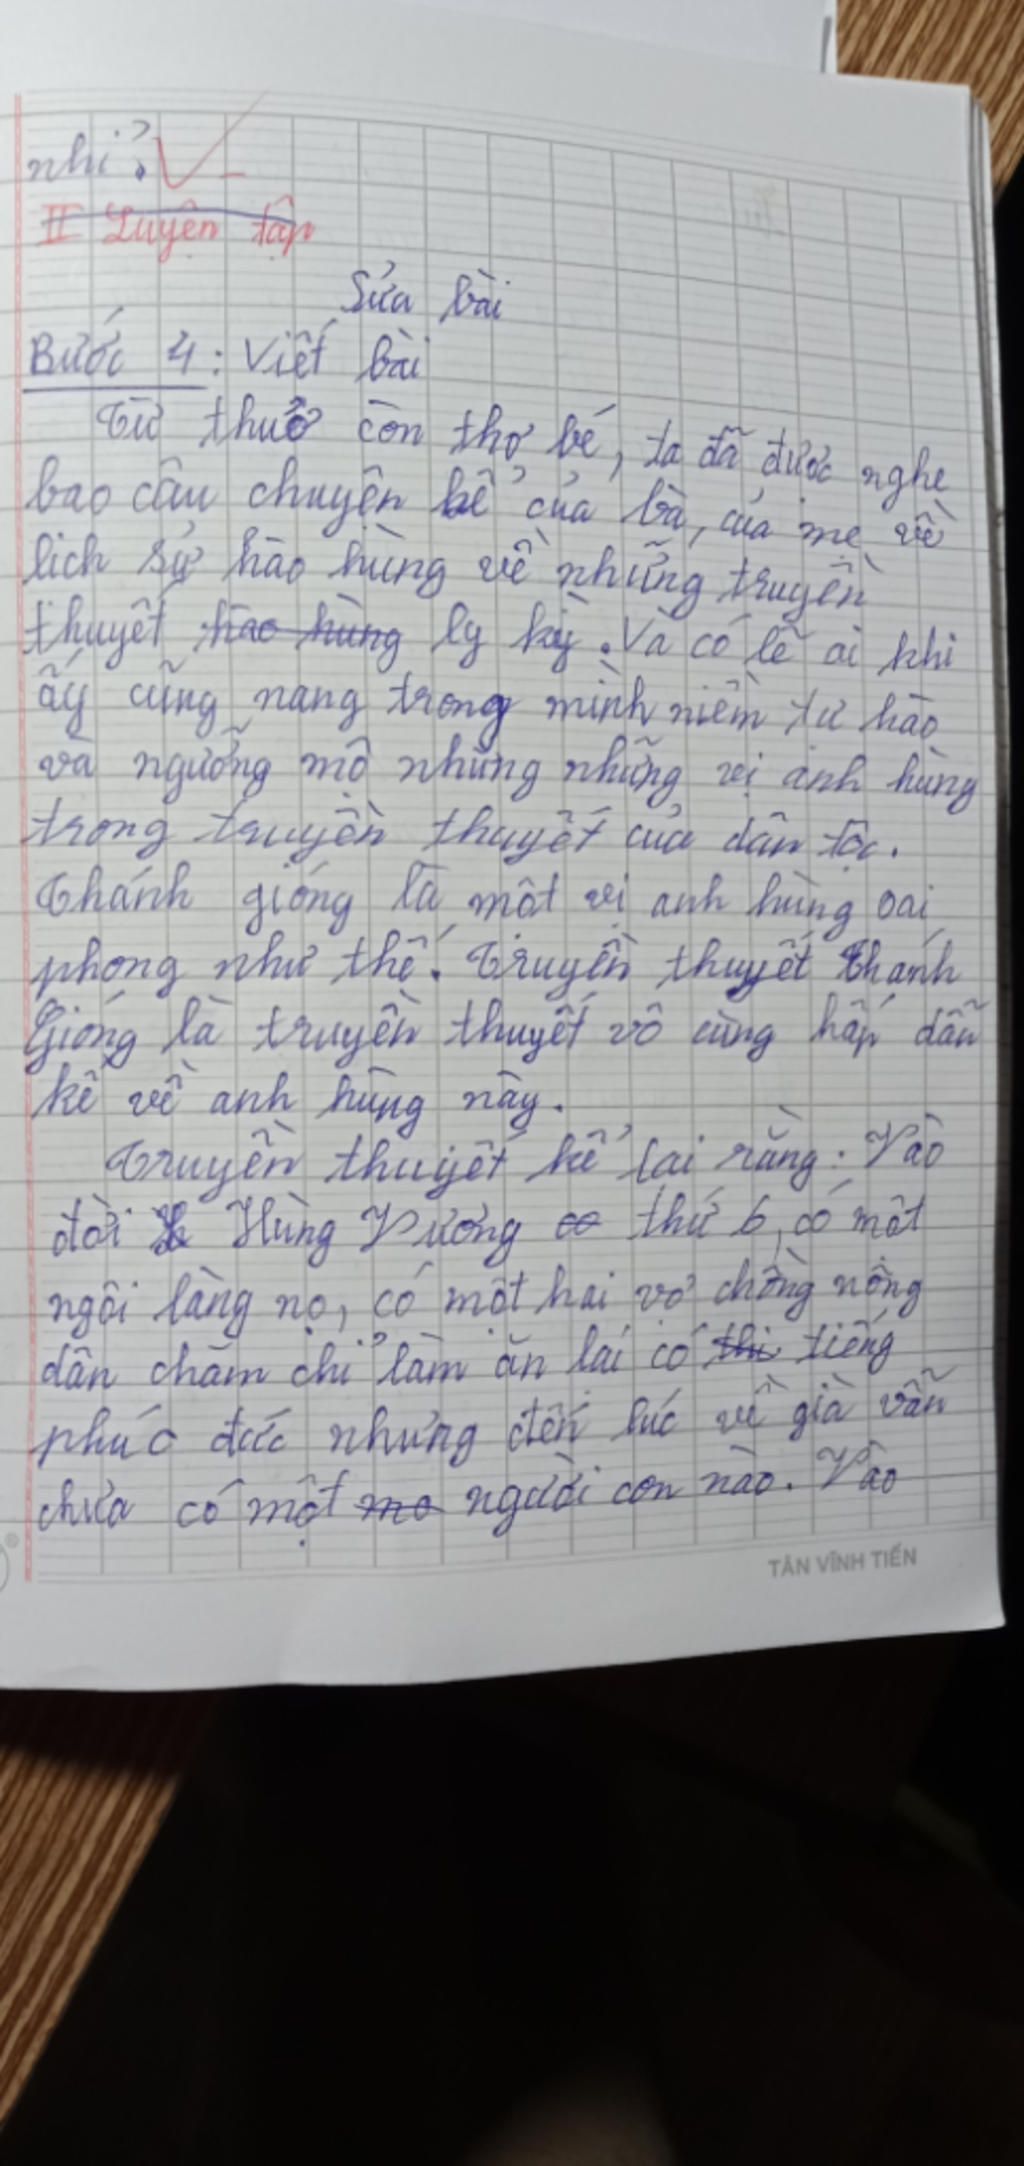 nhỉ?
II Luyện tập
Sửa bài
Bước 4: Viết bài
Từ thuở còn thơ bé, ta đã được nghe
bao câu chuyện kể của bà, của mẹ về
lich sử hào hùng về những truyền
thuyết hào hùng ly kỳ. Và có lẽ ai khi
ấy cũng nang trong mình niềm tư hào
và ngưỡng mộ những những vị anh hùng
trong truyền thuyết của dân tộc.
Thánh gióng là một vị anh hùng oai
phong như thế. Truyền thuyết Thánh
Gióng là truyền thuyết vô cùng hấp dẫn
kể về anh hùng này.
Truyền thuyết kể lại rằng: Vào
đời Hùng Vương thứ 6, có một
ngôi làng nọ, có một hai vợ chồng nông
dân chăm chỉ làm ăn lái có thi tiếng
phúc đức nhưng đến lúc về già vẫn
chưa có một mo người con nào. Vào
TÂN VĨNH TIẾN